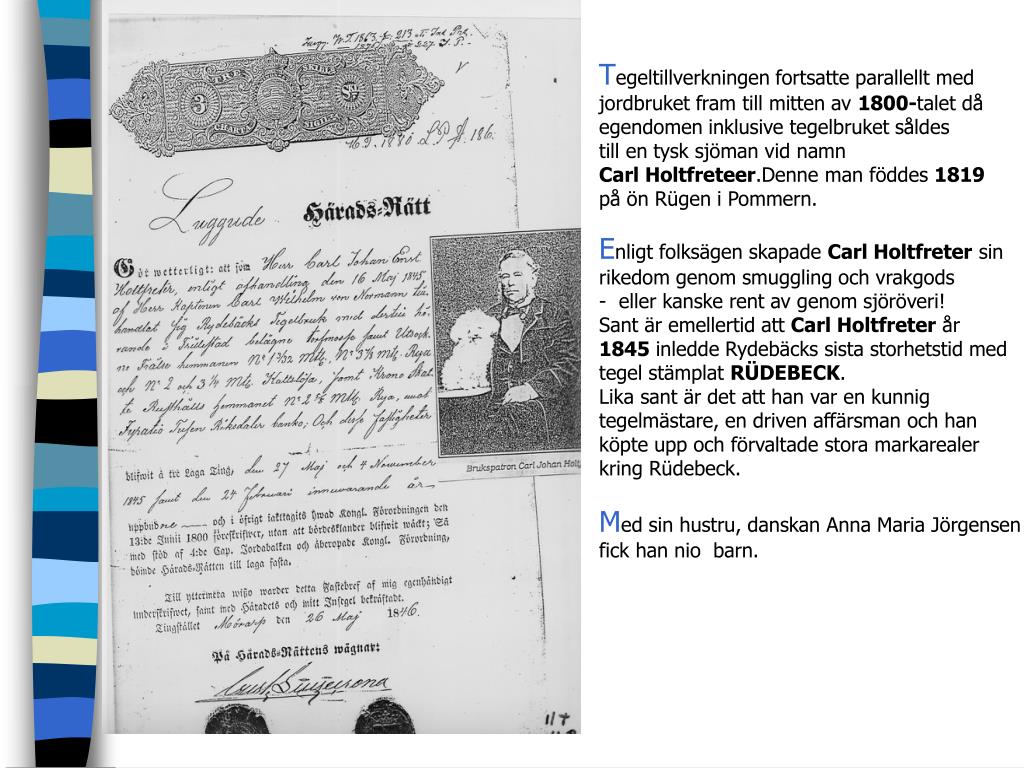 Luggude Härads-Rätt
Gör wetterligt: att som Herr Carl Johan Ernst
Holtfreter, enligt afhandling den 16 Maj 1845
af Herr Kaptenen Carl Wilhelm von Normann till-
handlat sig Rydebäcks Tegelbruk med dertill hö-
rande i Fräl­lestad belägne torfmosse samt Utsock-
ne Frälse hemmanen
och N° 2 och 3 1/4 Mtl. Katslösa, samt Krono Skat-
te Rusthålls hemmanet N° 2 Mtl. Rya, emot
Riksdaler banko; Och desse fastigheter
blifwit å tre Laga Ting, den 27 Maj och 4 November
1845 samt den 24 Februari innewarande år
uppbudne och i öfrigt iakttagits hwad Kongl. Förordningen den
13:de Junii 1800 föreskrifwer, utan att bördesklander blifwit wäckt; Så
med stöd af 4:de Cap. Jordabalken och åberopade Kongl. Förordning,
dömde Härads-Rätten till laga fasta.
Till yttermera wißo warder detta Fastebref af mig egenhändigt
underskrifwet, samt med Häradets och mitt Insegel bekräftadt.
Tingstället Mörarp den 26 Maj 1846.
På Härads-Rättens wägnar:
Brukspatron Carl Johan Holt
Tegeltillverkningen fortsatte parallellt med
jordbruket fram till mitten av 1800-talet då
egendomen inklusive tegelbruket såldes
till en tysk sjöman vid namn
Carl Holtfreteer.Denne man föddes 1819
på ön Rügen i Pommern.
Enligt folksägen skapade Carl Holtfreter sin
rikedom genom smuggling och vrakgods
- eller kanske rent av genom sjöröveri!
Sant är emellertid att Carl Holtfreter år
1845 inledde Rydebäcks sista storhetstid med
tegel stämplat RÜDEBECK.
Lika sant är det att han var en kunnig
tegelmästare, en driven affärsman och han
köpte upp och förvaltade stora markarealer
kring Rüdebeck.
Med sin hustru, danskan Anna Maria Jörgensen
fick han nio barn.